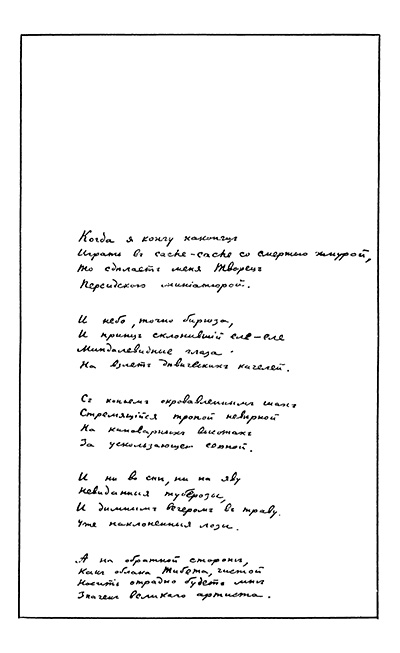 Когда я кончу наконецъ
Играть въ cache-cache со смертью хмурой,
То сдѣлаетъ меня Творецъ
Персидскою миніатюрой.
И небо, точно бирюза,
И принцъ склонившій еле-еле
Миндалевидные глаза
На взлетъ дѣвическихъ качелей.
Съ копьемъ окровавленнымъ шахъ
Стремящійся тропой невѣрной
На киноварныхъ высотахъ
За ускользающей серной.
И ни во снѣ, ни на яву
Невиданныя туберозы,
И дымнымъ вечеромъ въ траву.
Уже наклоненныя лозы.
А на обратной сторонѣ,
Какъ облака Тибета, чистой
Носить отрадно будетъ мнѣ
Значекъ великаго артиста.